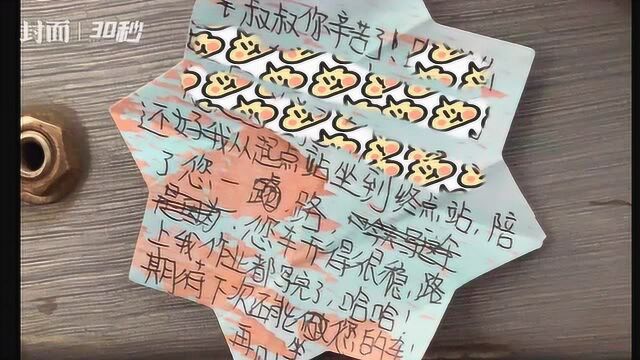 封面 30秒
叔叔你辛苦了！
还好我从起点站坐到终点站，陪
了您一路
您车开得很稳，路
上我作业都写完了，哈哈！
期待下次还能坐您的车！
再见